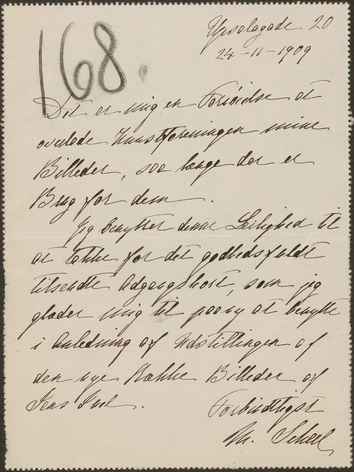 168.
Upsalagade 20
24-11-1909
Det er mig en Fornöielse at
overlade Kunstforeningen mine
Billeder, saa længe der er
Brug for dem.
Jeg benytter denne Leilighed til
at takke for det godhedsfuldt
tilsendte Adgangskort, som jeg
glæder mig til paany at benytte
i Anledning af Udstillingen af
den nye Række Billeder af
Jens Juel.
Forbindtligst
M.